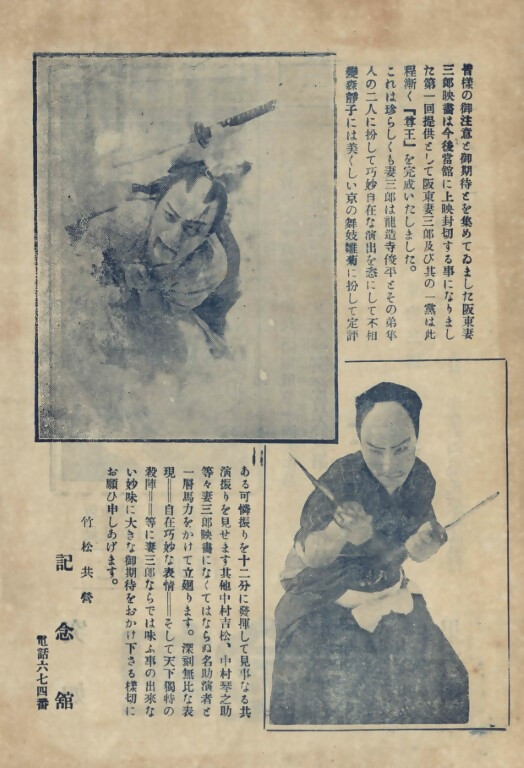 皆樣の御注意と御期待とを集めてゐました阪東妻
三郎映畫は今後當館に上映封切する事になりまし
た第一回提供として阪東妻三郎及び其の一黨は此
程漸く『尊王』を完成いたしました。
これは珍らしくも妻三郎は龍造寺俊平とその弟隼
人の二人に扮して巧妙自在な演出を恣にして不相
變森靜子には美くしい京の舞妓雛菊に扮して定評
ある可憐振りを十二分に發揮して見事なる共
演振りを見せます其他中村吉松、中村琴之助
等々妻三郎映畫になくてはならぬ名助演者と
一層馬力をかけて立廻ります。深刻無比な表
現＝＝自在巧妙な表情＝＝そして天下獨特の
殺陣＝＝等に妻三郎ならでは味ふ事の出來な
い妙味に大きな御期待をおかけ下さる樣切に
お願ひ申しあげます。
竹松共營
記念舘
電話六七四番